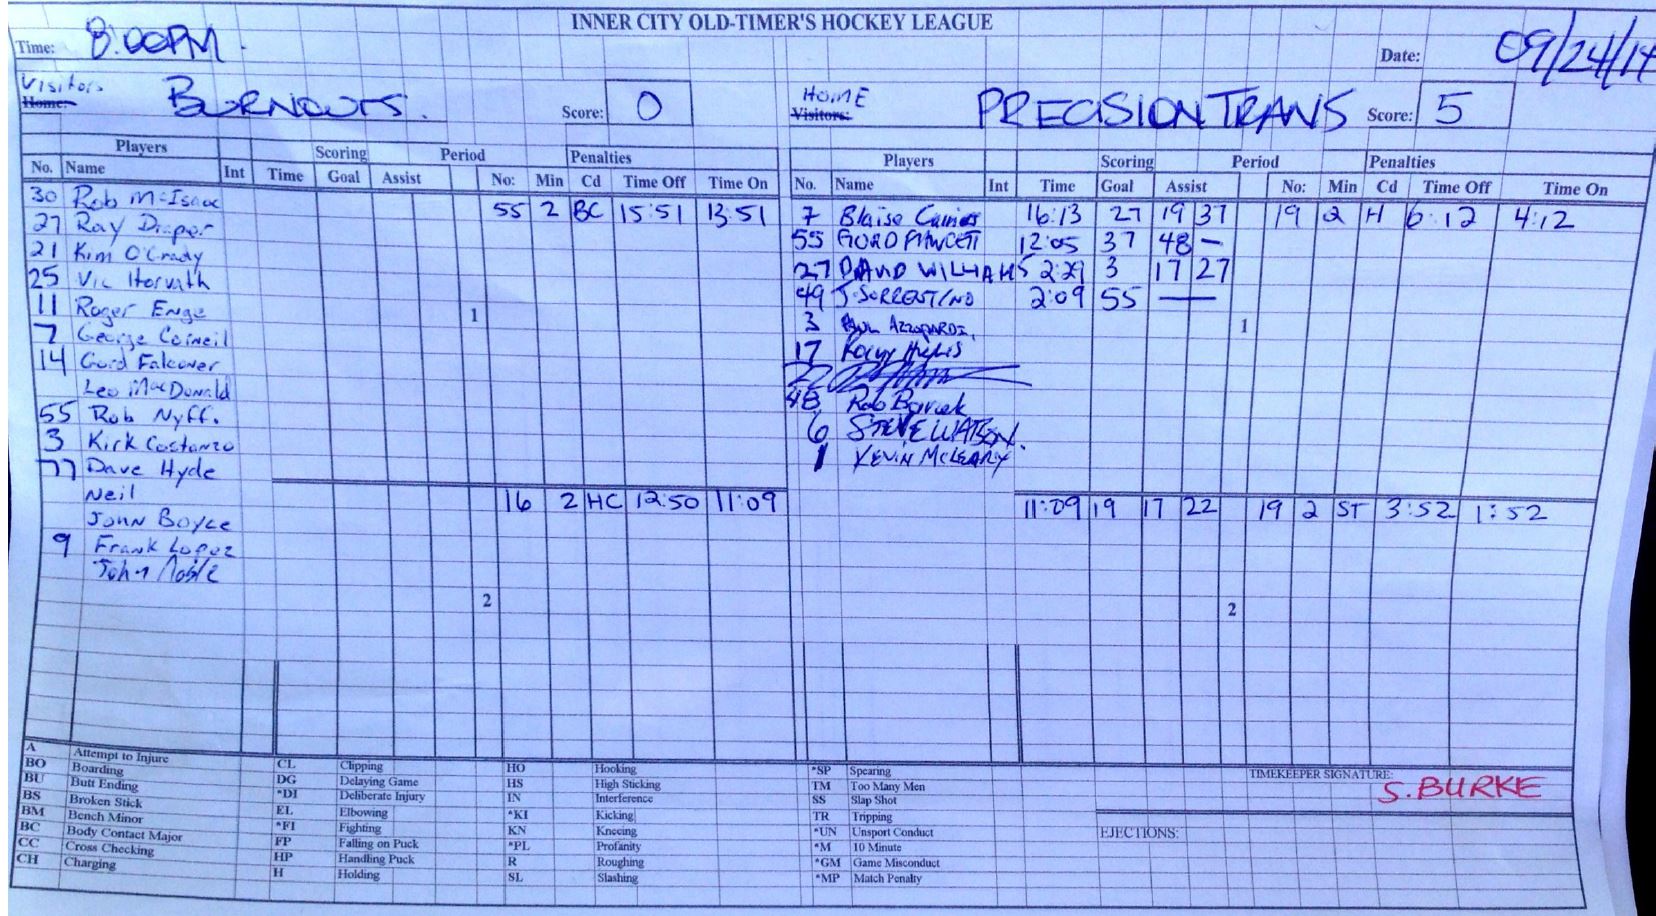 INNER CITY OLD-TIMER'S HOCKEY LEAGUE
Time: 8:00PM. Date: 09/24/14
Visitors HOME
Home: BURNOUTS. Score: 0 Visitors: PRECISION TRANS Score: 5
Players Scoring Period Penalties Players Scoring Period Penalties
No. Name Int Time Goal Assist No: Min Cd Time Off Time On No. Name Int Time Goal Assist No: Min Cd Time Off Time On
30 Rob McIsaac 55 2 BC 15:51 13:51 7 Blaise 16:13 27 19 37 19 2 H 6:12 4:12
27 Ray Draper 55 GORD FAWCETT 12:05 37 48 —
21 Kim O'Grady 27 DAVID WILLIAMS 2:29 3 17 27
25 Vic Horvath 49 J. SORRESTINO 2:09 55 —
11 Roger Enge 1 3 PAUL AZZOPARDI. 1
7 George Corneil 17
14 Gord Falconer 22
Leo MacDonald 48 Rob
55 Rob Nyff. 6 STEVE WATSON.
3 Kirk Costanzo 1 KEVIN MCLEARY
77 Dave Hyde
Neil 16 2 HC 12:50 11:09 11:09 19 17 22 19 2 ST 3:52 1:52
John Boyce
9 Frank Lopez
John Noble
2 2
A Attempt to Injure CL Clipping HO Hooking *SP Spearing TIMEKEEPER SIGNATURE: S. BURKE
BO Boarding DG Delaying Game HS High Sticking TM Too Many Men
BU Butt Ending *DI Deliberate Injury IN Interference SS Slap Shot
BS Broken Stick EL Elbowing *KI Kicking TR Tripping
BM Bench Minor *FI Fighting KN Kneeing *UN Unsport Conduct EJECTIONS:
BC Body Contact Major FP Falling on Puck *PL Profanity *M 10 Minute
CC Cross Checking HP Handling Puck R Roughing *GM Game Misconduct
CH Charging H Holding SL Slashing *MP Match Penalty